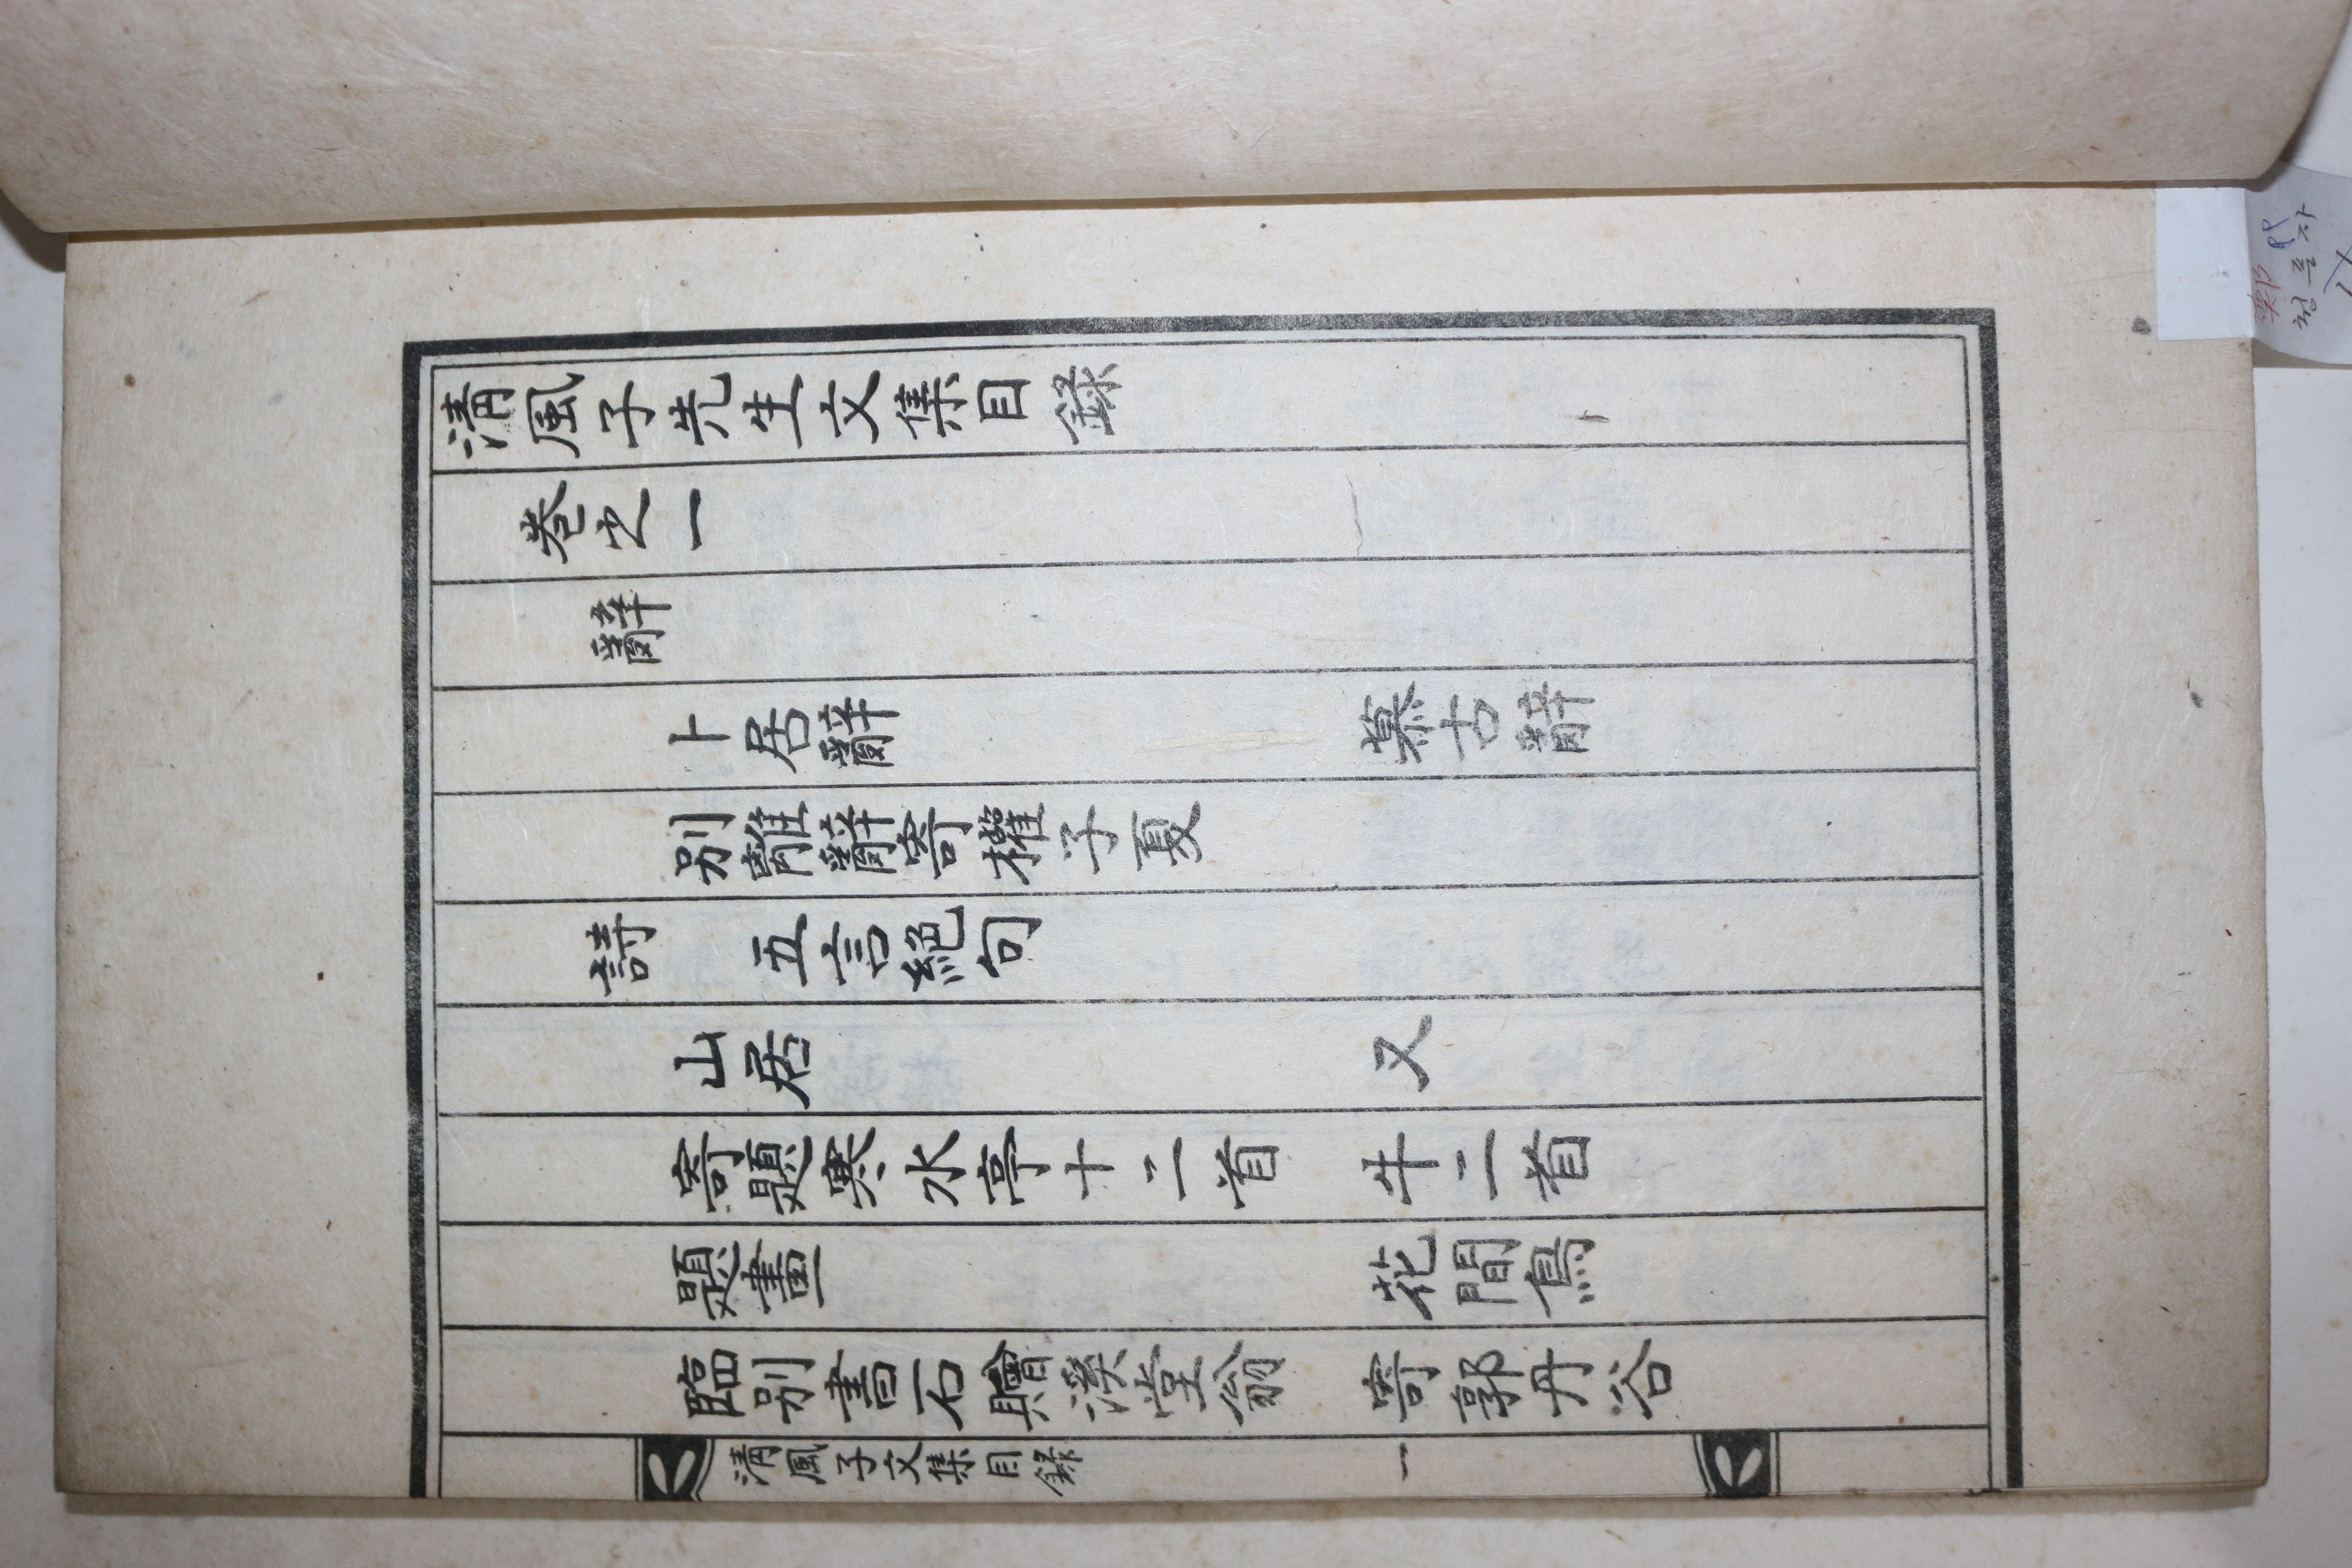 清風子先生文集目錄
卷之一
辭
卜居辭 慕古辭
別離辭寄權子夏
詩 五言絕句
山居 又
寄題寒水亭十二首 牛二首
題畫 花間鳥
臨別畵石贈溪堂翁 寄郭丹谷
清風子文集目錄 一